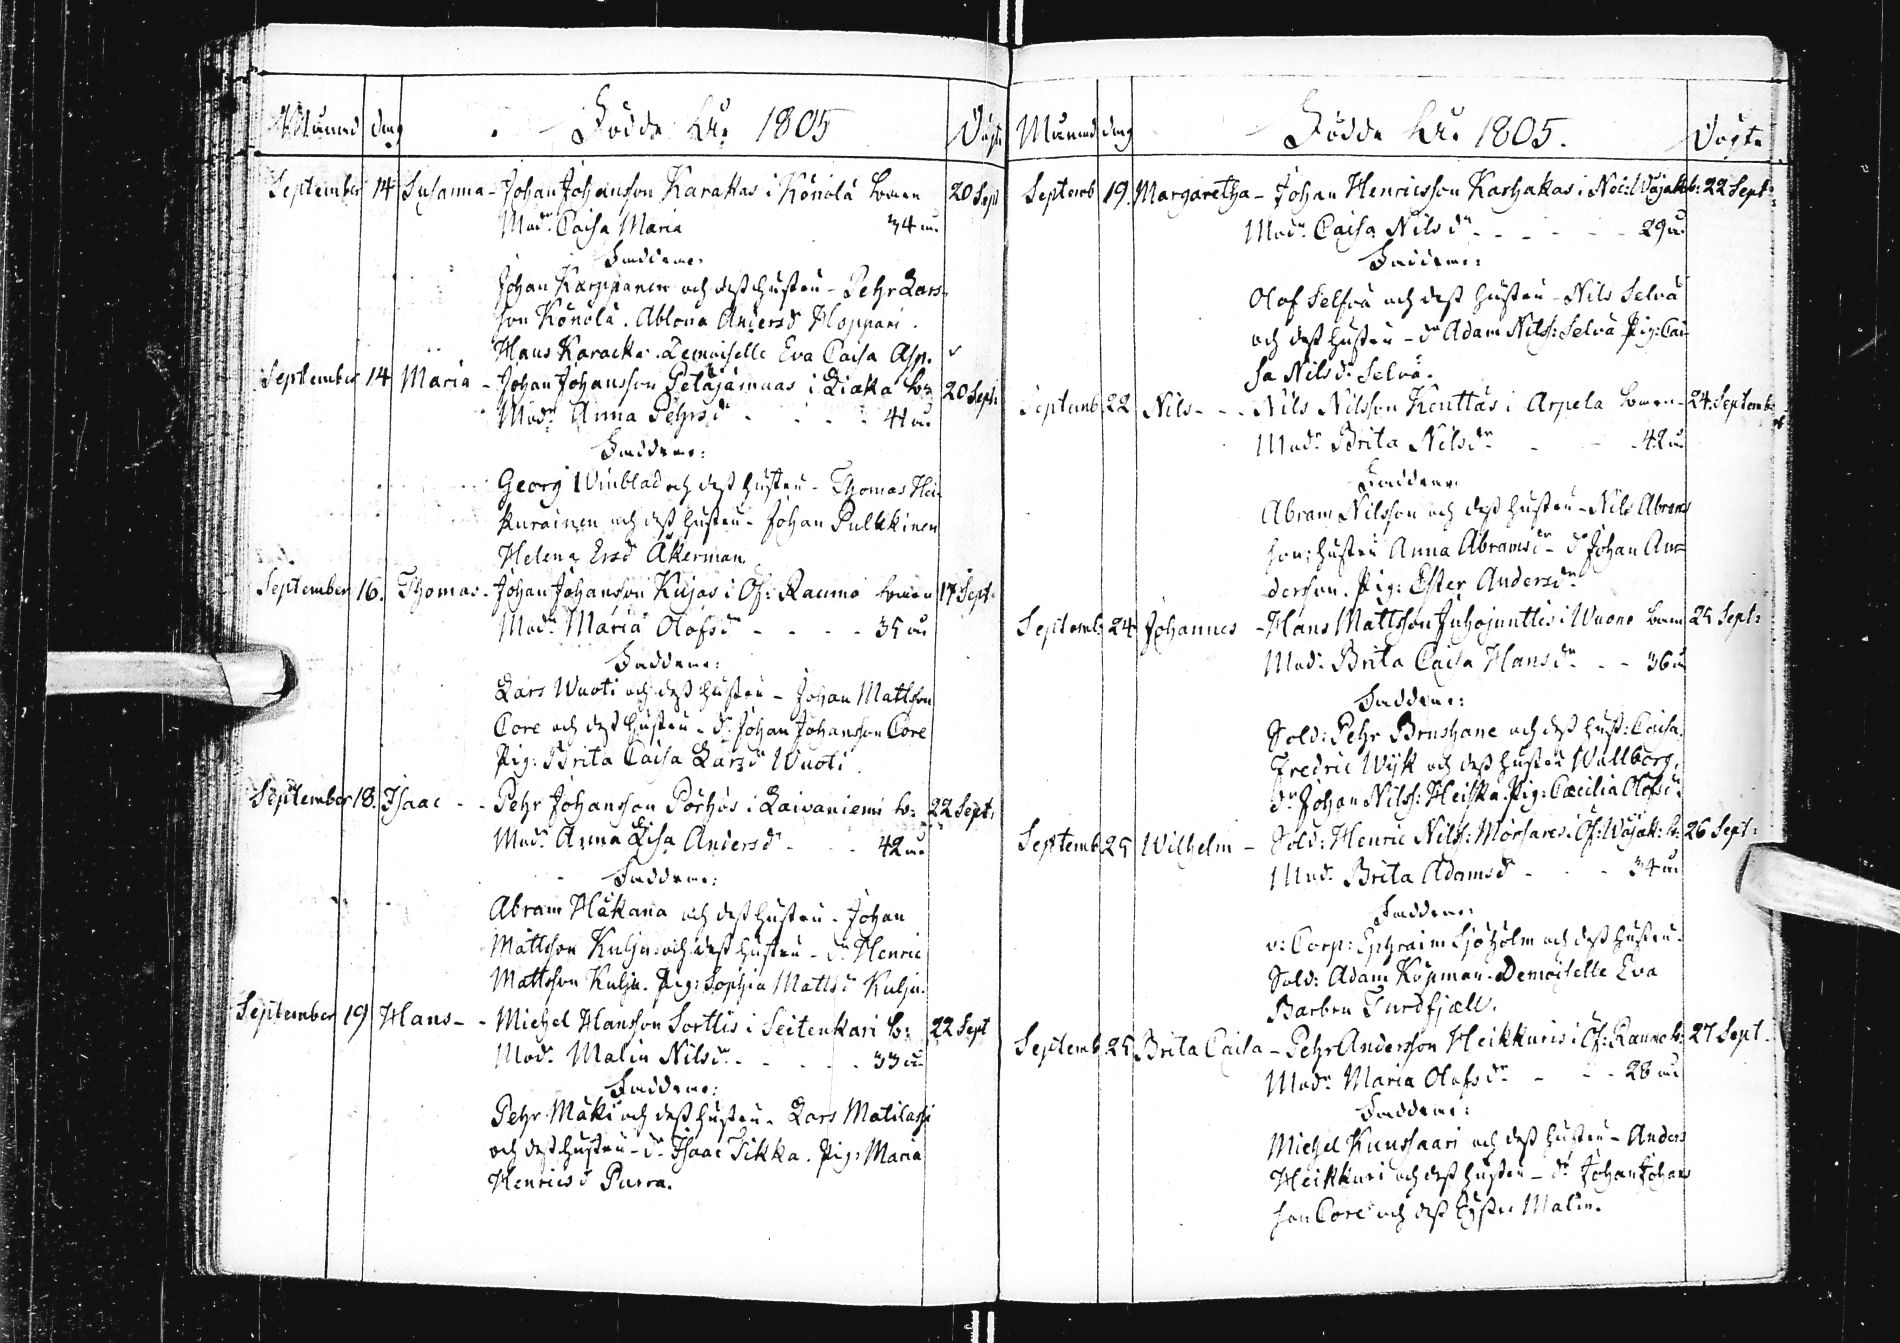 Månad dag Födde År 1805 Döpte
September 14 Susanna - Johan Johansson Karakas i Könölä bonen 20 Sept
Modr Caisa Maria 34 år
Faddrar:
Johan Karppanen och dess hustru - Pehr Lars-
son Könölä. Ablona Andersdr Hoppari.
Hans Karacka. Demoiselle Eva Caisa Asp.
September 14 Maria - Johan Johansson Petäjämaas i Liakka b: 20 Sept:
Modr Anna Pehrsdr - - - 41 år
Faddrar:
Georg Winblad och dess hustru - Thomas Hei-
kurainen och dess hustru - Johan Pulkkinen
Helena Ersdr Åkerman
September 16. Thomas - Johan Johansson Kujas i Öf: Raumo bonen 17 Sept:
Modr Maria Olofsdr - - - - 35 år
Faddrar:
Lars Wuoti och dess hustru - Johan Mattsson
Core och dess hustru - dr Johan Johansson Core
Pig: Brita Caisa Larsdr Wuoti.
September 18. Isaac - - Pehr Johansson Pörhös i Laivaniemi b: 22 Sept:
Modr Anna Lisa Andersdr - - - 42 år
Faddrar:
Abram Häkana och dess hustru - Johan
Mattsson Kulju och dess hustru - dr Henric
Mattsson Kulju. Pig: Sophia Mattsdr Kulju.
September 19 Hans - - Michel Hansson Sorttis i Seitenkari b: 22 Sept
Modr Malin Nilsdr - - - - 33 år
Faddrar:
Pehr Mäki och dess hustru - Lars Matilassi
och dess hustru - dr Isaac Tikka. Pig: Maria
Henricsdr Purra.
Månad dag Födde År 1805. Döpte
Septemb 19. Margaretha - Johan Henricsson Karhakas i Ned: Wojak: b: 22 Sept:
Modr Caisa Nilsdr - - - - - 29 år
Faddrar:
Olof Selfvä och dess hustru - Nils Selvä
och dess hustru - dr Adam Nilss: Selvä Pig: Cai-
sa Nilsdr Selvä.
Septemb 22 Nils - - - Nils Nilsson Kenttäs i Arpela bonen - 24 Septemb
Modr Brita Nilsdr - - - 42 år
Faddrar:
Abram Nilsson och dess hustru - Nils Abrams-
son; hustru Anna Abramsdr - dr Johan An-
dersson. Pig: Ester Andersdr
Septemb 24 Johannes - Hans Mattsson Juhojunttis i Wuono bonen 25 Sept:
Modr Brita Caisa Hansdr - - 36 år
Faddrar:
Sold: Pehr Brushane och dess hust: Caisa.
Fredric Wijk och dess hustru Wallborg.
dr Johan Nilss: Heiska. Pig: Cæcilia Olofsdr
Septemb 25 Wilhelm - Sold: Henric Nilss: Mörsares i Öf: Wojak: b: 26 Sept:
Modr Brita Adamsdr - - - 34 år
Faddrar:
v: Corp: Ephraim Sjöholm och dess hustru.
Sold: Adam Köpman. Demoiselle Eva
Barbra Turdfjæll.
Septemb 25 Brita Caisa - Pehr Andersson Heikkuris i Öf: Raumo b: 27 Sept.
Modr Maria Olofsdr - - - 28 år
Faddrar:
Michel Kuusisaari och dess hustru - Anders
Heikkuri och dess hustru - dr Johan Johans-
son Core och dess Syster Malin.